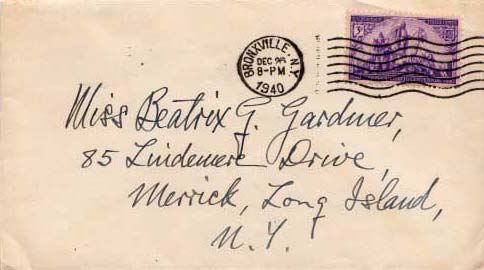 BRONXVILLE, N.Y.
DEC 26
8-PM
1940
3¢
Miss Beatrix G. Gardner,
85 Lindemere Drive,
Merrick, Long Island,
N.Y.